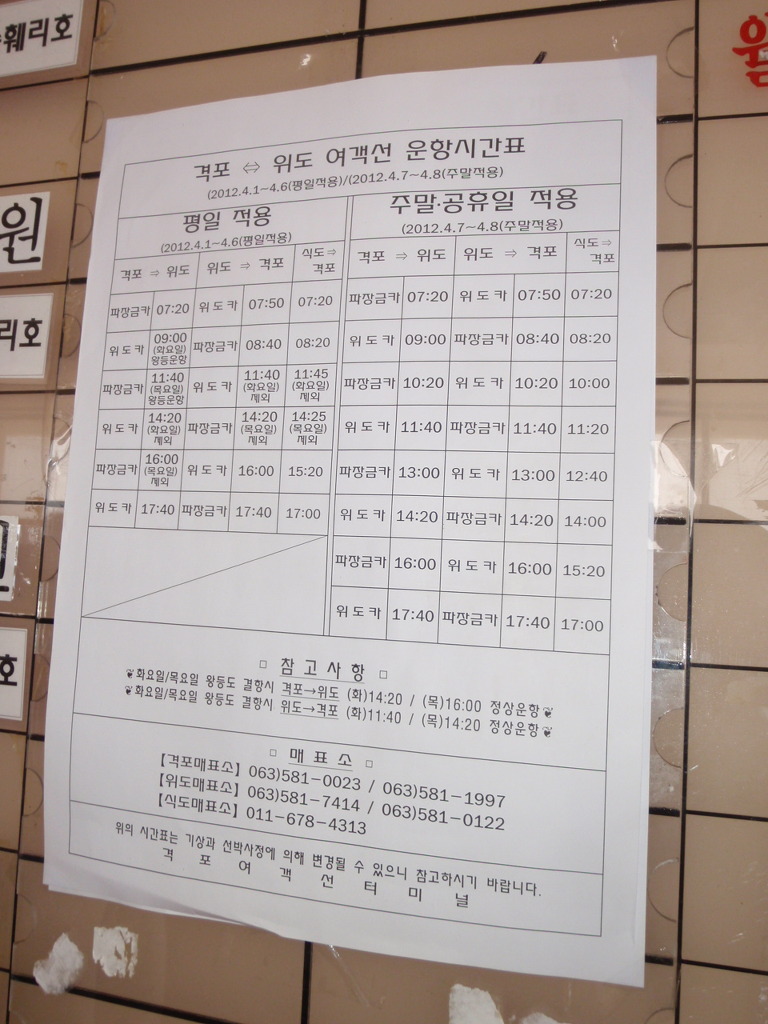 훼리호
원
원
리호
호
격포 ⇔ 위도 여객선 운항시간표
(2012.4.1~4.6(평일적용)/(2012.4.7~4.8(주말적용)
평일 적용
(2012.4.1~4.6(평일적용)
격포 ⇒ 위도 위도 ⇒ 격포 식도⇒ 격포
파장금카 07:20 위도카 07:50 07:20
위도카 09:00 (화요일) 왕등운항 파장금카 08:40 08:20
파장금카 11:40 (목요일) 왕등운항 위도카 11:40 (화요일) 제외 11:45 (화요일) 제외
위도카 14:20 (화요일) 제외 파장금카 14:20 (목요일) 제외 14:25 (목요일) 제외
파장금카 16:00 (목요일) 제외 위도카 16:00 15:20
위도카 17:40 파장금카 17:40 17:00
주말·공휴일 적용
(2012.4.7~4.8(주말적용)
격포 ⇒ 위도 위도 ⇒ 격포 식도⇒ 격포
파장금카 07:20 위도카 07:50 07:20
위도카 09:00 파장금카 08:40 08:20
파장금카 10:20 위도카 10:20 10:00
위도카 11:40 파장금카 11:40 11:20
파장금카 13:00 위도카 13:00 12:40
위도카 14:20 파장금카 14:20 14:00
파장금카 16:00 위도카 16:00 15:20
위도카 17:40 파장금카 17:40 17:00
□ 참고사항 □
❦화요일/목요일 왕등도 결항시 격포→위도 (화)14:20 / (목)16:00 정상운항❦
❦화요일/목요일 왕등도 결항시 위도→격포 (화)11:40 / (목)14:20 정상운항❦
□ 매표소 □
【격포매표소】 063)581-0023 / 063)581-1997
【위도매표소】 063)581-7414 / 063)581-0122
【식도매표소】 011-678-4313
위의 시간표는 기상과 선박사정에 의해 변경될 수 있으니 참고하시기 바랍니다.
격포여객선터미널